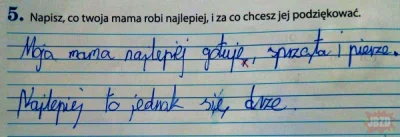 5. Napisz, co twoja mama robi najlepiej, i za co chcesz jej podziękować.
Moja mama najlepiej gotuje, sprząta i pierze.
Najlepiej to jednak się drze.
JBZD